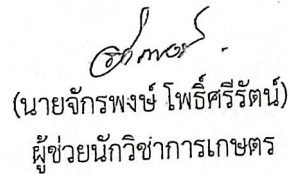 (นายจักรพงษ์ โพธิ์ศรีรัตน์)
ผู้ช่วยนักวิชาการเกษตร